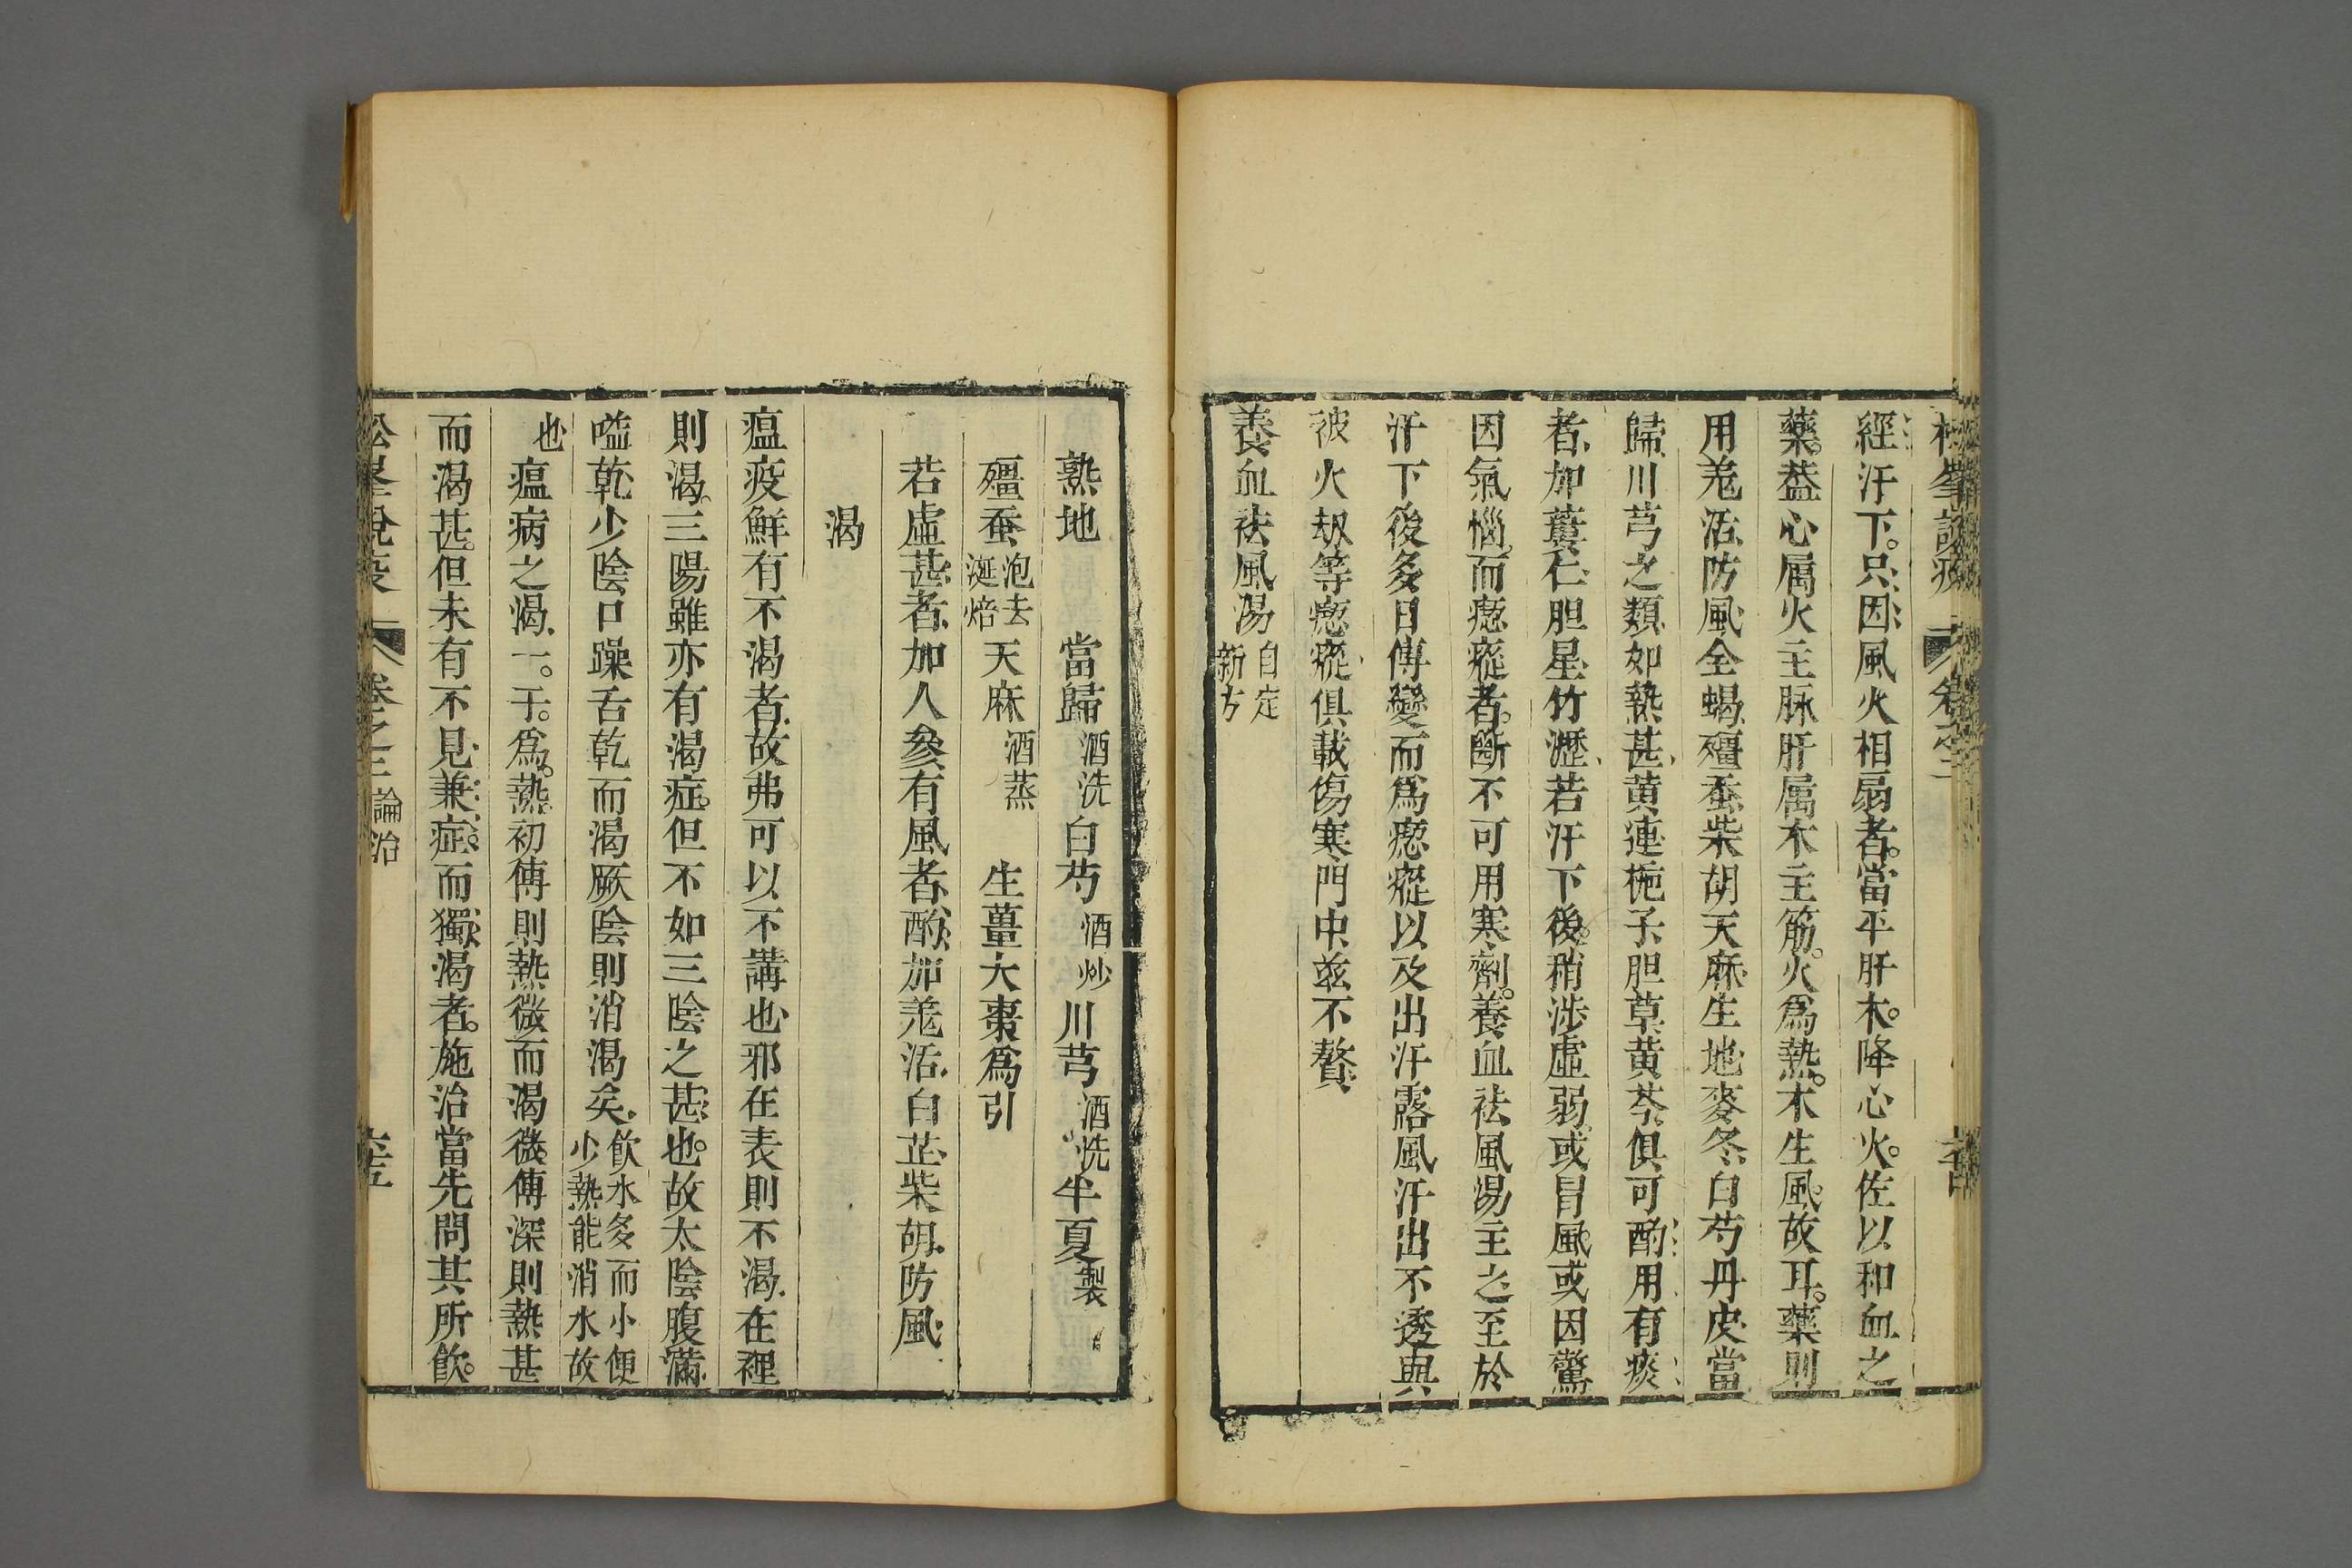 松峯說疫 卷之二
經汗下。只因風火相扇者。當平肝木。降心火。佐以和血之
藥。葢心属火主脉肝属木主筋。火爲熱。木生風。故耳。藥則
用羗活防風全蝎殭蚕柴胡天麻生地麥冬白芍丹皮當
歸川芎之類如熱甚黄連梔子胆草黄芩俱可酌用有痰
者加蔞仁胆星竹瀝若汗下後。稍涉虛弱。或冒風。或因驚
因氣惱。而瘛瘲者。斷不可用寒劑。養血祛風湯主之至於
汗下後多日傳變而爲瘛瘲以及出汗露風汗出不透與
被火刼等瘛瘲俱載傷寒門中兹不贅
養血祛風湯 自定新方
熟地 當歸 酒洗 白芍 酒炒 川芎 酒洗 半夏 製
殭蚕 泡去涎焙 天麻 酒蒸 生薑大棗爲引
若虛甚者加人參有風者酌加羗活白芷柴胡防風
渴
瘟疫鮮有不渴者故弗可以不講也邪在表則不渴在裡
則渴。三陽雖亦有渴症。但不如三陰之甚也。故太陰腹滿
嗌乾少陰口躁舌乾而渴厥陰則消渴矣。飲水多而小便少熱能消水故
也 瘟病之渴一。于。爲。熱。初傳則熱微而渴微。傳深則熱甚
而渴甚。但未有不見兼症。而獨渴者。施治當先問其所飲。
松峯說疫 卷之二 論治 六五